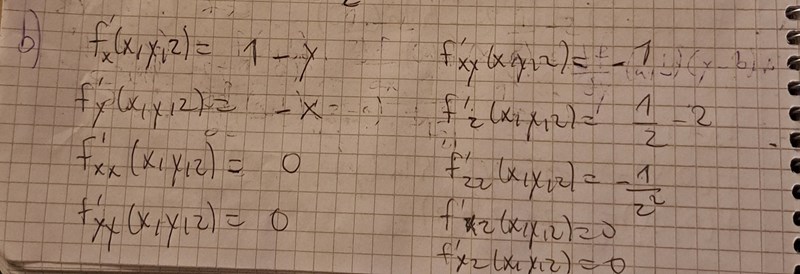 b)
f'x(x,y,z) = 1 - y
f'y(x,y,z) = - x
f'xx(x,y,z) = 0
f'yy(x,y,z) = 0
f'xy(x,y,z) = - 1
f'z(x,y,z) = 1/z - 2
f'zz(x,y,z) = - 1/z²
f'xz(x,y,z) = 0
f'xz(x,y,z) = 0